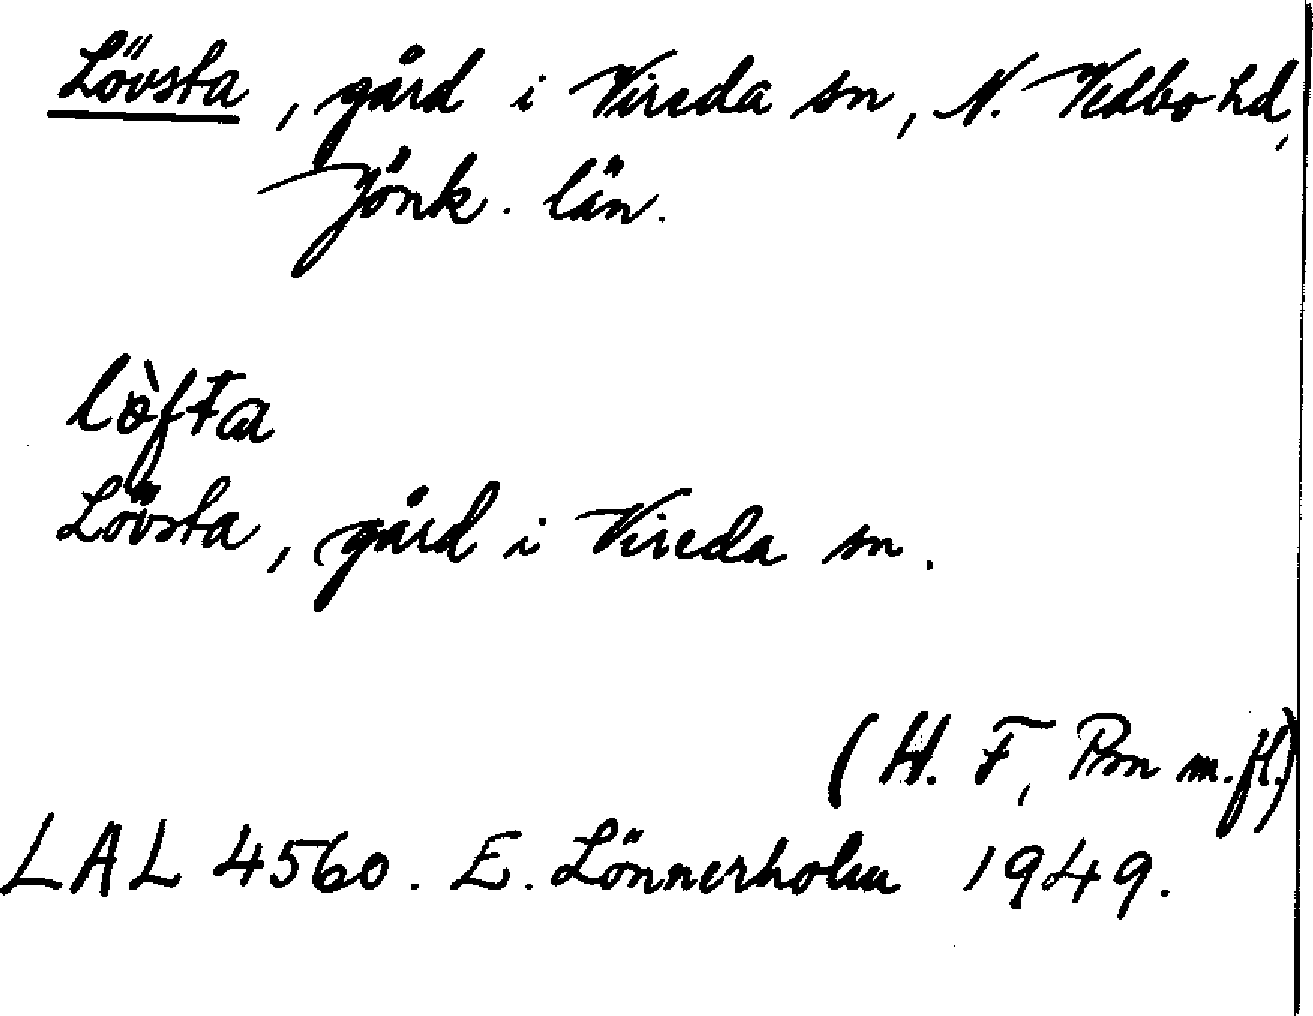 Lövsta, gård i Vireda sn, N. Vedbo hd,
Jönk. län.
lòfta
Lövsta, gård i Vireda sn.
(H. F, Psn m.fl.)
LAL 4560. E. Lönnerholm 1949.